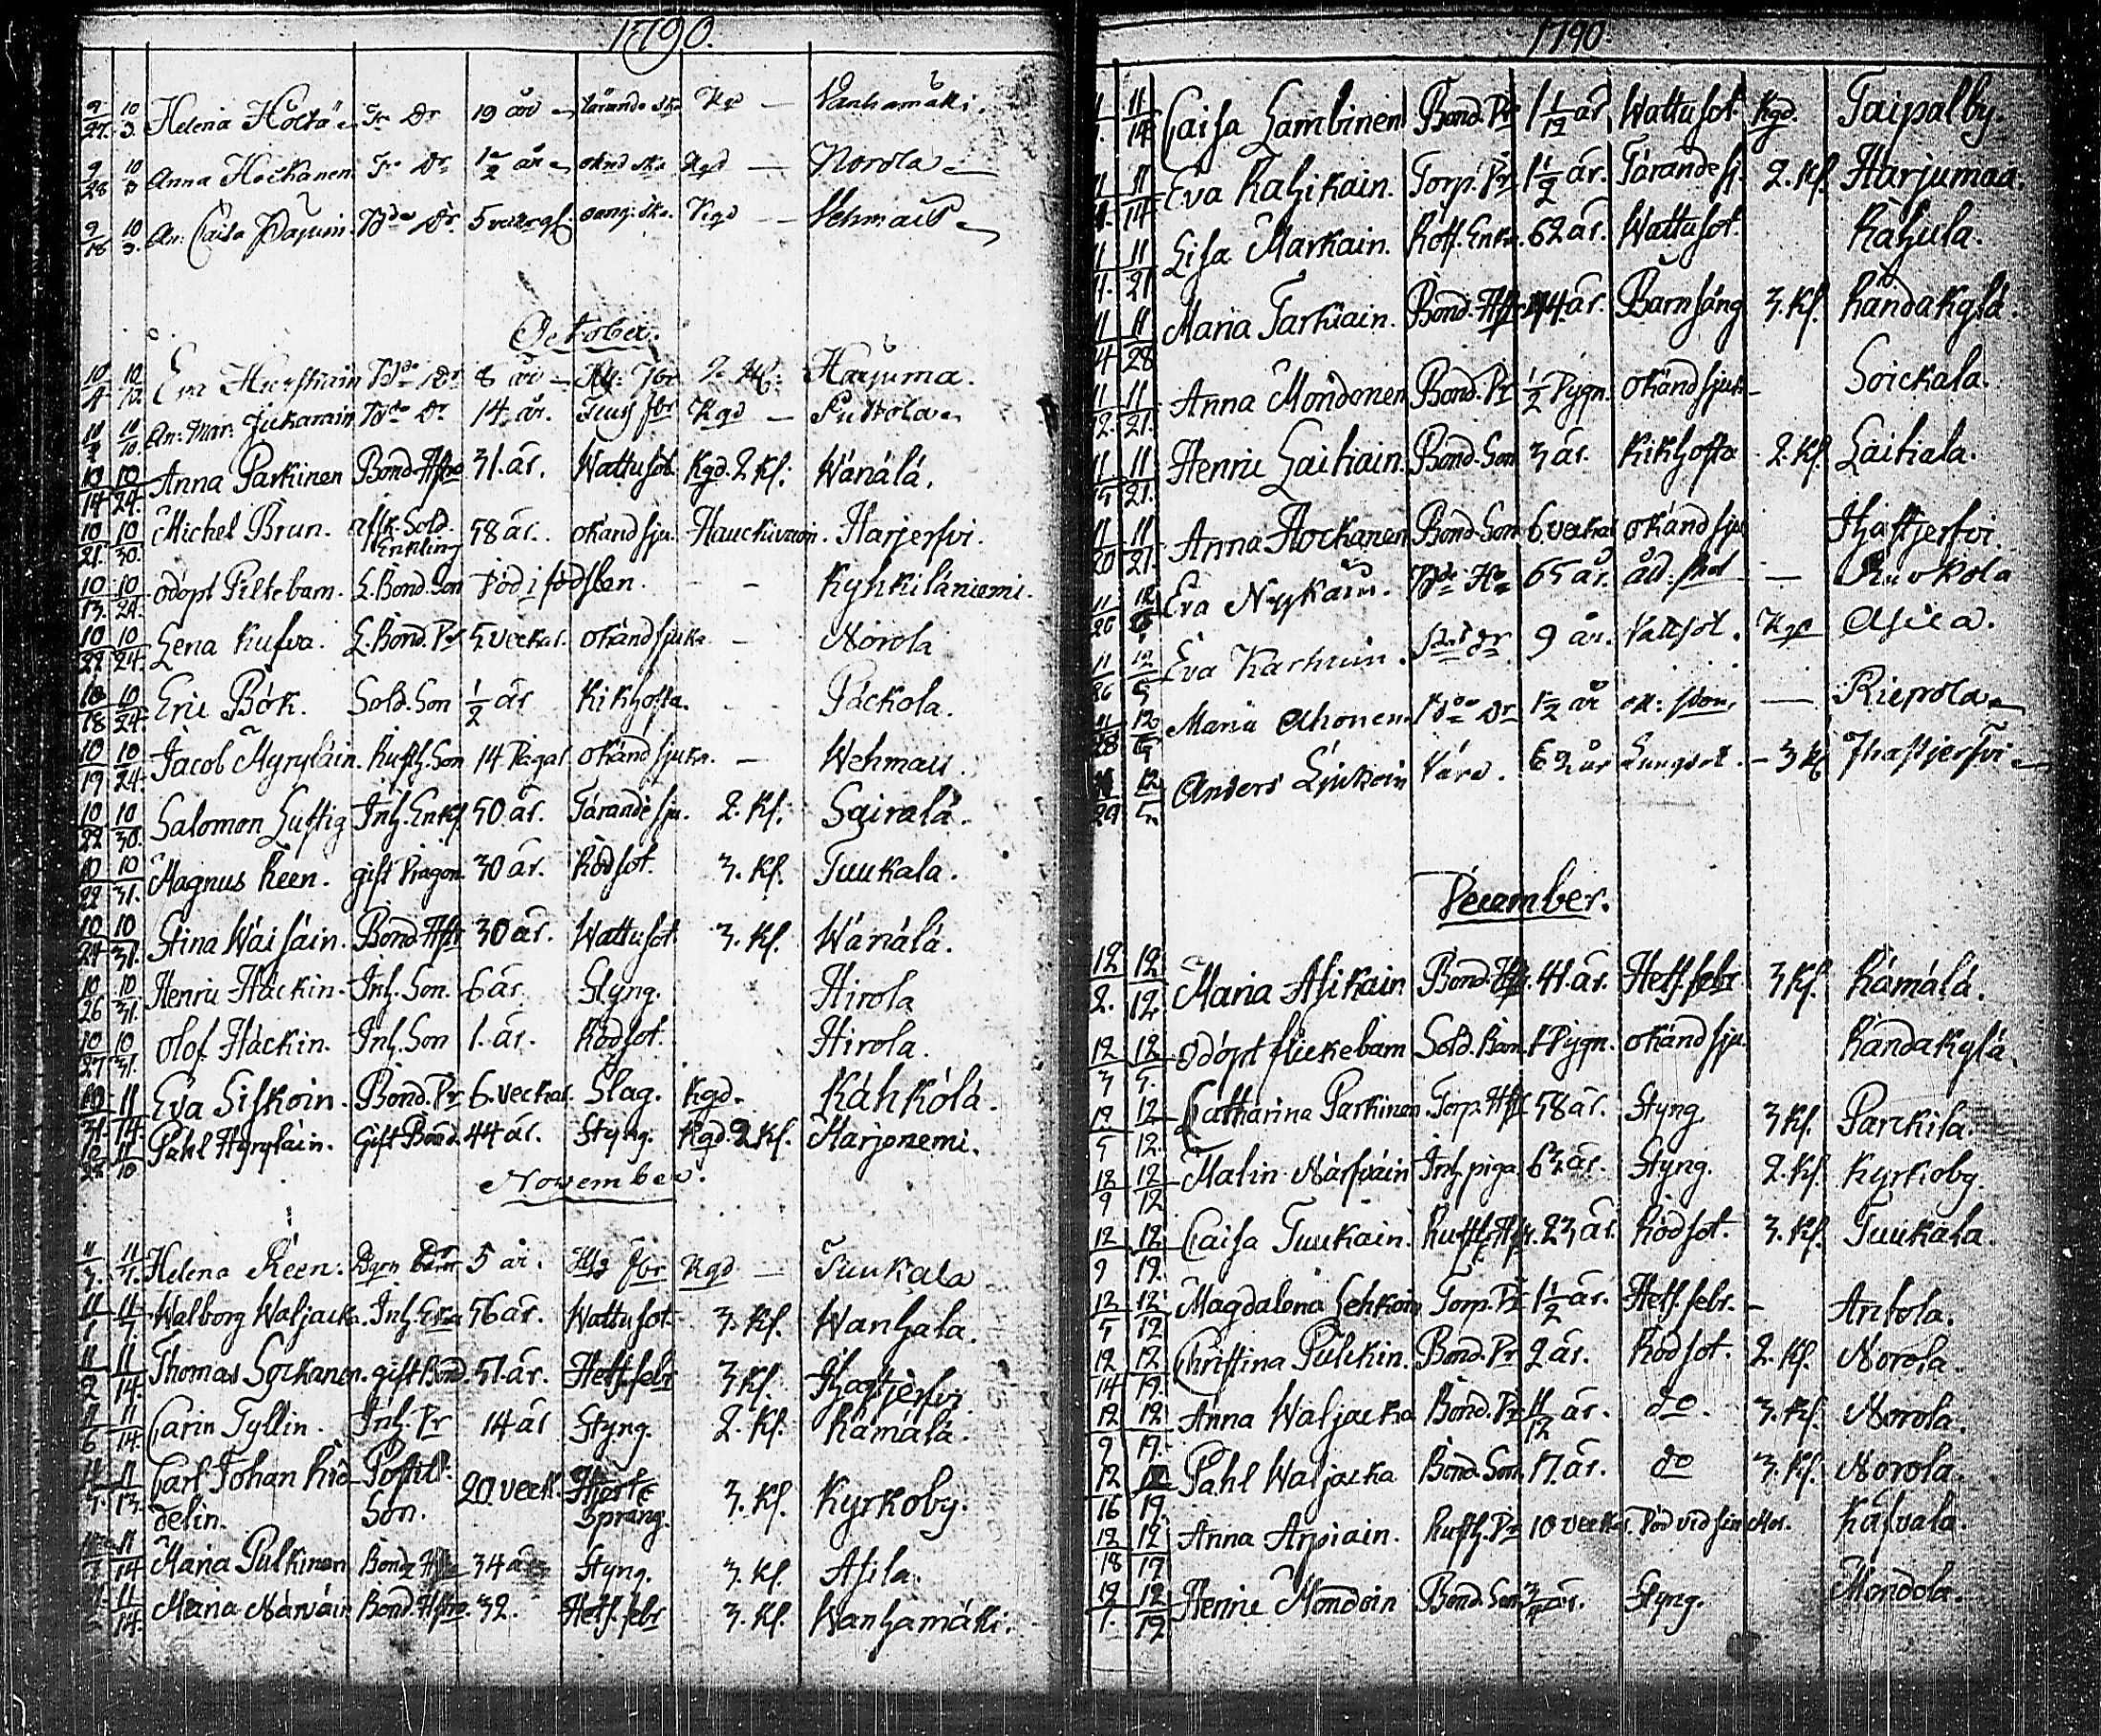 1790.
9/27. 10/3. Helena Höltö Fr Dr 19 år tärande sk. Kgd — Vanhamäki.
9/28 10/3 Anna Hockanen Fr Dr 1/2 år oknd sk. Kgd — Norola
9/16 10/3. An: Caisa Pajuin. Bde Dr. 5 veckor gl. sk. Kgd — Vehmais
October.
10/4 10/10. Eva Hurskain Bde Dr 8 år — fbr 2 Kl: Harjuma.
10/10. An: Mar: Jukarain Bde Dr 14 år. fbr Kgd — Puttola
10/14 10/24. Anna Parkinen Bond. Hstro 31. år. Wattusot. Kgd. 2 Kl. Wänälä.
10/21. 10/30. Michel Brun. afsk. Sold. Enkling 58 år. okänd sju. Hauckivuon. Harjerfvi.
10/13. 10/24. odöpt Piltebarn. L. Bond. Son Död i födslen. - - Kyhkiläniemi.
10/22 10/24. Lena Kufva. L. Bond. Dr 5. veckar. okänd sjuka - Norola
10/18 10/24. Eric Bök. Sold. Son 1/2 år Kikhosta. - Päckola.
10/19 10/24. Jacob Hyryläin. Rusth. Son 14 Dagar okänd sjuka. - Wehmais.
10/22 10/30. Salomon Lustig Inh. Enkl 50. år. Tärande sju. 2. Kl. Sairala.
10/22 10/31. Magnus Reen. gift Dragon 30 år. Rödsot. 3. Kl. Tuukala.
10/24 10/31. Stina Wäisäin. Bond. Hstr 30 år. Wattusot. 3. Kl. Wänälä.
10/26 10/31. Henric Häckin. Inh. Son. 6 år. Styng. Hirola
10/27 10/31. Olof Häckin. Inh. Son 1. år. Rödsot. Hirola.
10/31. 11/14. Eva Siskoin. Bond. Dr 6. veckar. Slag. Kgd. Kähkölä.
10/22. 11/10 Påhl Hyryläin. Gift Bond. 44 år. Styng. Kgd. 2 Kl. Harjonemi.
November.
11/3. 11/7. Helena Reen. 5 år. fbr Kgd — Tuukala
11/1 11/7. Walborg Waljacka. Inh. Enka 56 år. Wattusot. 3. Kl. Wanhala.
11/2 11/14. Thomas Sockanen. gift Bond. 51. år. Hets. febr 3 Kl. Ihastjerfvi
11/6 11/14. Carin Tyllin. Inh. Dr 14 år Styng. 2. Kl. Kämälä.
11/3. 11/13. Carl Johan Rid-
delin. Postil. Son. 20. veck. Hjerte Språng. 3. Kl. Kyrkoby.
11/14 Maria Pulkinen Bond. 34 år Styng. 3. Kl. Asila.
11/14. Maria Närväin Bond. Hstro. 32. Hets. febr 3. Kl. Wanhamäki.
1790
11/14 Caisa Lambinen Bond. Dr 1 1/12 år Wattusot Kgd. Taipalby.
11/14 Eva Rahikain. Torp. Dr 1 1/2 år. Tärande sj. 2. Kl. Harjumaa.
11/11. 11/21 Lisa Markain. Rotf. Enka. 62 år. Wattusot. Rahula.
11/4 11/28 Maria Tarkiain. Bond. Hstr 44 år. Barnsäng 3. Kl. Randakylä.
11/2. 11/21. Anna Mondonen Bond. Dr 1/2 Dygn. okänd sjuk- Soickala.
11/15 11/21. Henric Laitiain. Bond. Son 3 år. Kikhosta 2. Kl. Laitiala.
11/20 11/21. Anna Hockanen Bond. Son 6. veckar okänd sju Ihastjerfvi.
11/26 12/5 Eva Nyykäin. Bde Hu 65 år. åld: — Ruokola
11/26 12/5 Eva Karhuin. dr 9 år. Vattsot. Kgd Asila.
11/28 12/5 Maria Ahonen. Bde Dr 1 1/2 år ok: — Riepola
11/29 12/5. Anders Liukoin 62 år Lungsot. - 3 Kl Ihastjerfvi
December.
12/2. 12/12. Maria Asikain Bond. Hstr. 41. år. Hets. febr 3 Kl. Kämälä.
12/3 12/5. odöpt flickebarn Sold. Barn 1 Dygn. okänd sju. Randakylä.
12/5 12/12. Catharina Parkinen Torp. Hstr 58 år. Styng 3 Kl. Parckila.
12/9 12/12 Malin Närfväin Inh. piga. 63 år. Styng. 2. Kl. Kyrkoby.
12/9 12/19. Caisa Tuukain. Rusth. Hstr. 23 år. Rödsot. 3. Kl. Tuukala.
12/5 12/12 Magdalena Lehkoin Torp. Dr 1 1/2 år. Hets. febr. - Antola.
12/14 12/19. Christina Pulckin. Bond. Dr 2 år. Rödsot. 2. Kl. Norola.
12/9 12/19. Anna Waljacka Bond. Dr 11/12 år. do. 3. Kl. Norola.
12/16 12/19. Påhl Waljacka Bond. Son. 17. år. do 3. Kl. Norola.
12/18 12/19 Anna Arpiain. Rusth. Dr 10 veckar. Död vid sin Mor. Käfvala.
12/1. 12/19 Henric Mondoin Bond. Son 3/4 år. Styng. Mondola.